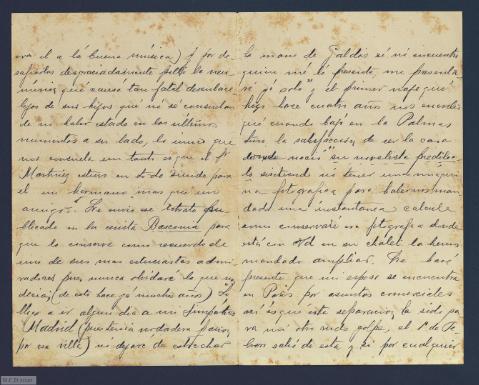 era el a la buena música) y por de
desgraciadamente falto la
que acaso tan fatal desenlace
lejos de sus hijos que ni se consuelan
de no haber estado en los últimos
momentos a su lado, lo unico que
nos consuela un tanto es que el Sr
Martinez estuvo en todo siendo para
el un hermano mas que un
amigo. Le envio su retrato pu
blicado en la revista para
que lo conserve como recuerdo de
uno de sus mas entusiastas admi
radores pues nunca olvidaré lo que me
decia, (de esto hace ya muchos años) Si
llego a ir algun dia a mi simpatico
Madrid (pues tenia verdadera pasion
por esa villa) no dejare de estrechar
la mano de Galdós si no encuentro
quien me le presente, me presenta
re yo solo", el primer viaje que
hizo hace cuatro años nos escribio
que cuando bajó en la Palmas
tuvo la satisfaccion de ver la casa
donde nacio su novelista predilec
to sintiendo no tener una maqui
na fotografica para haber man
dado una instantanea calcule
como conservaré esa fotografia donde
está con Vd en su chalet la hemos
mandado ampliar. Le hago
presente que mi esposo se encuentra
en Paris por asuntos comerciales
asi es que esta separacion ha sido pa
ra mi otro rudo golpe, el 1º de Fe
brero salió de esta y si por cualquier